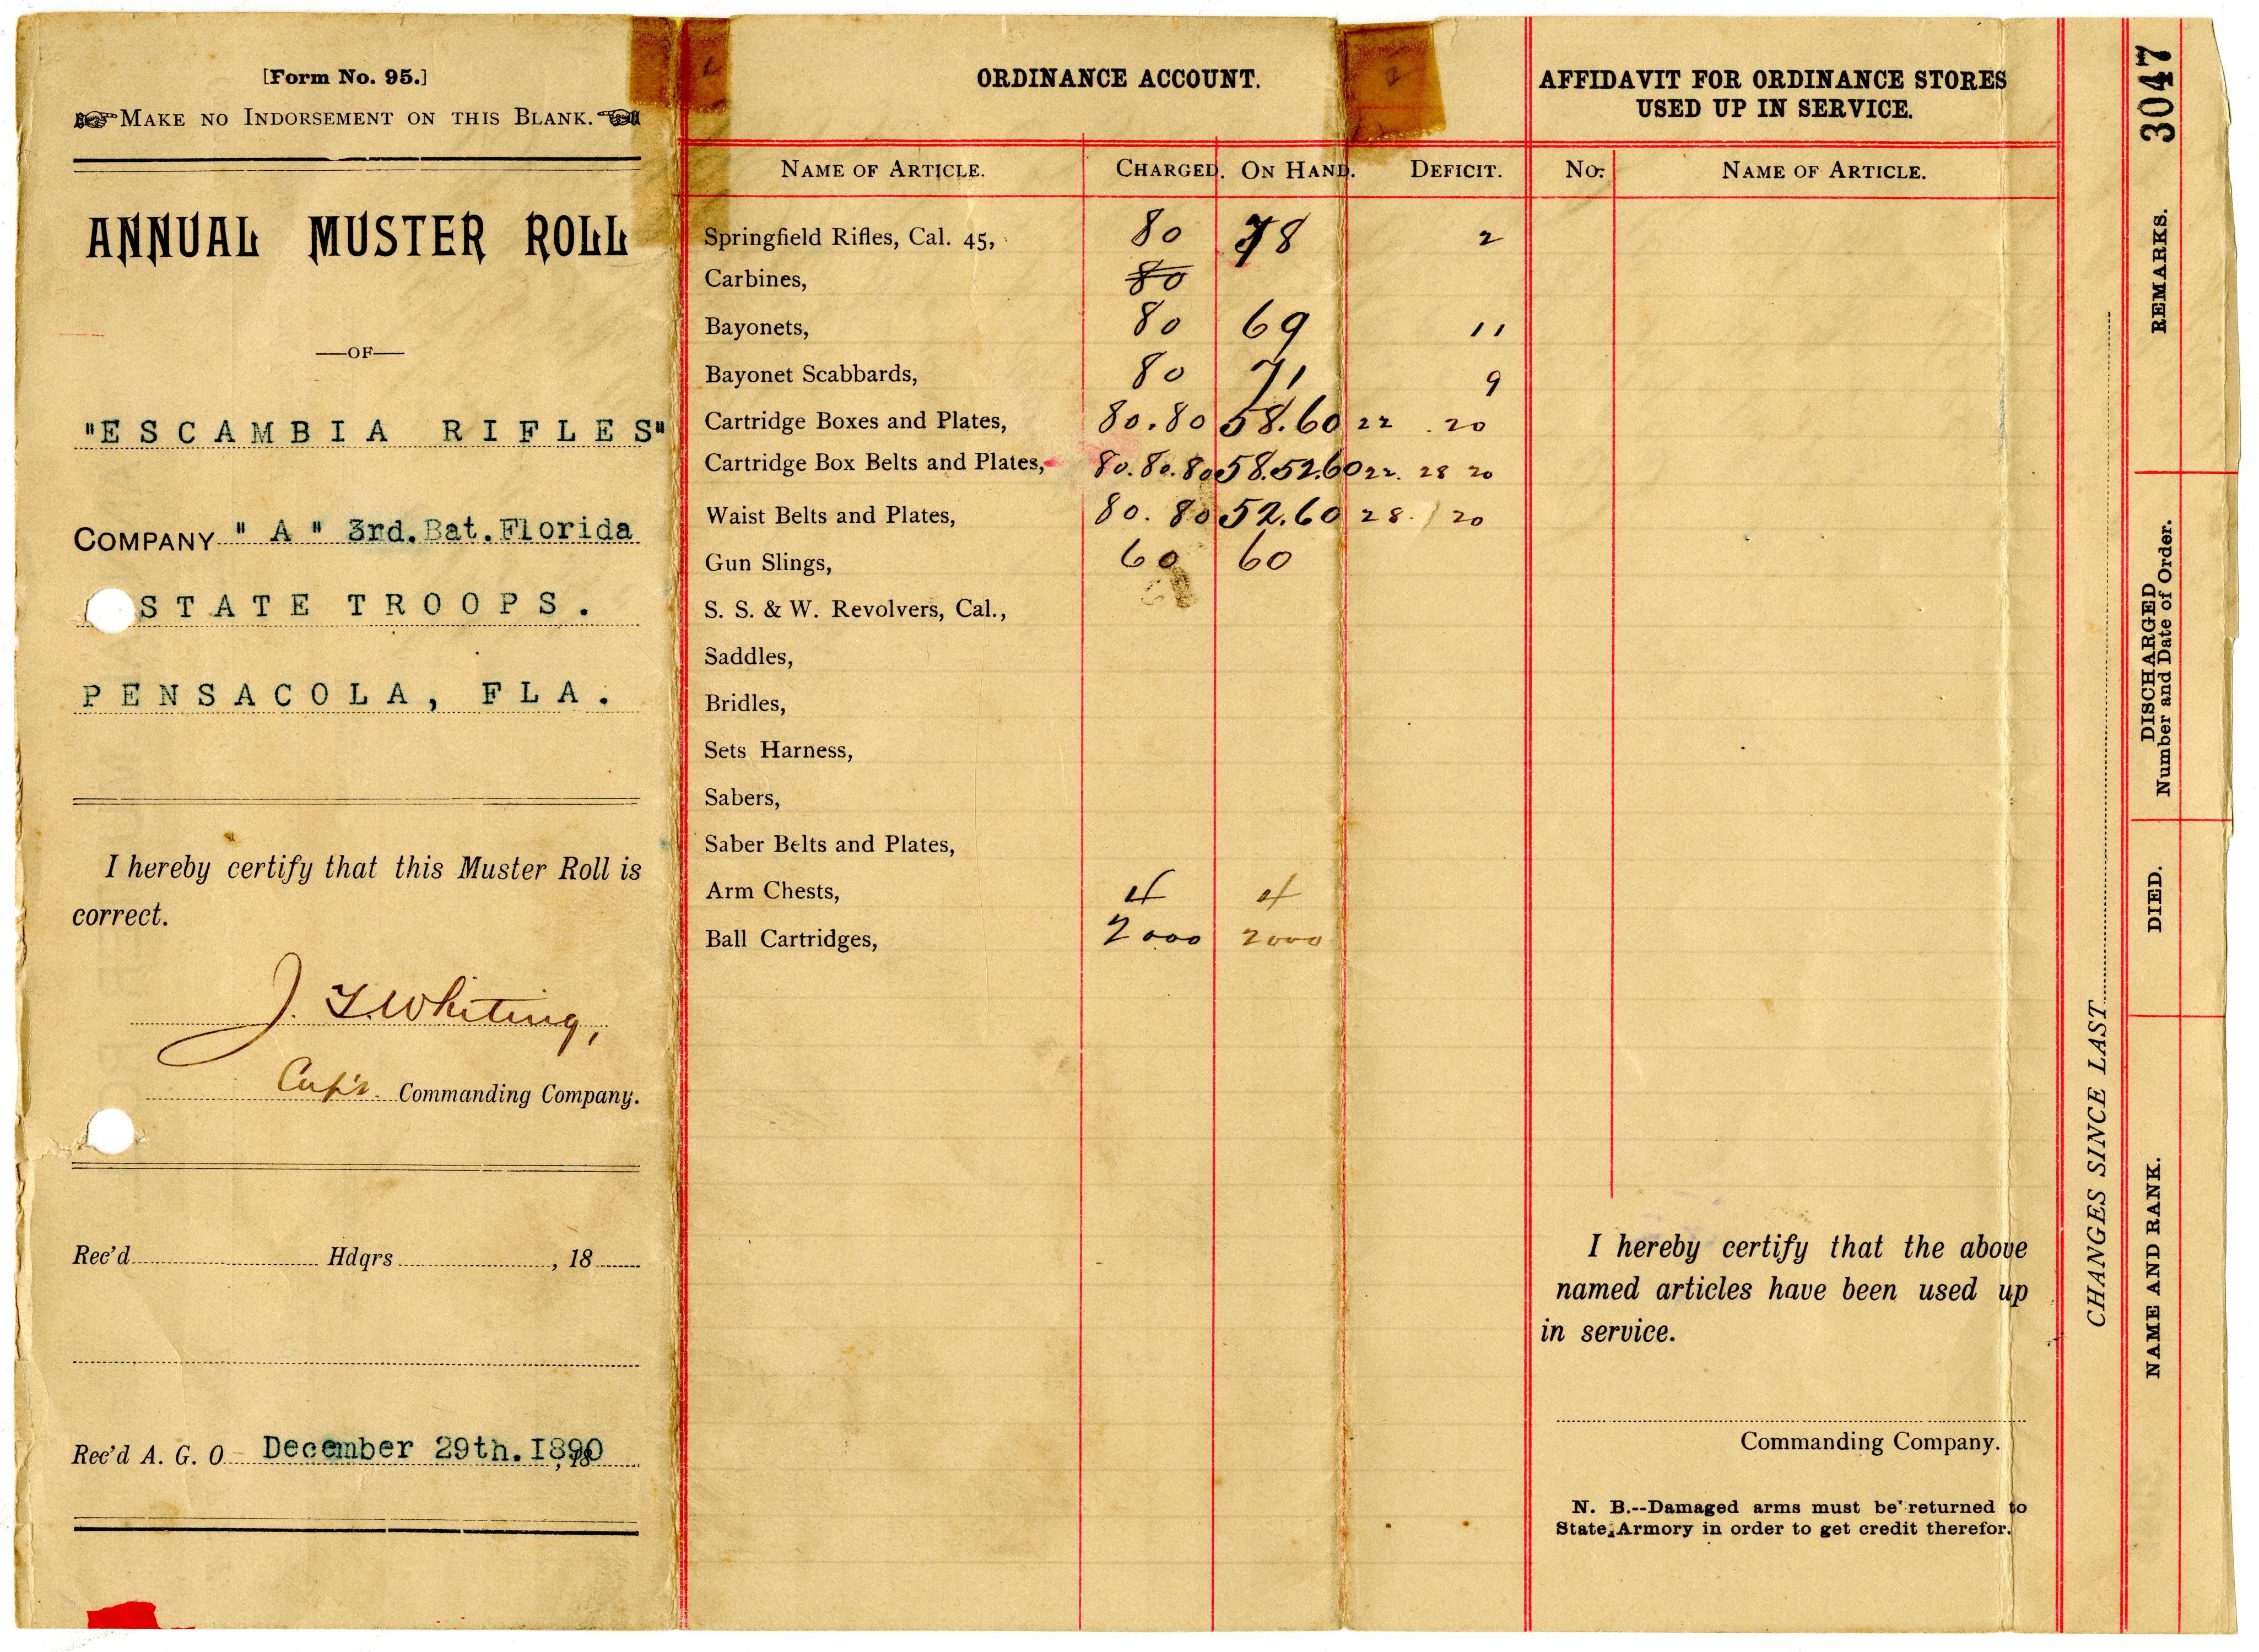 [Form No. 95.]
MAKE NO INDORSEMENT ON THIS BLANK.
ANNUAL MUSTER ROLL
—OF—
"ESCAMBIA RIFLES"
COMPANY " A " 3rd.Bat.Florida
STATE TROOPS.
PENSACOLA, FLA.
I hereby certify that this Muster Roll is
correct.
Whiting,
Commanding Company.
Rec'd Hdqrs , 18
Rec'd A. G. O December 29th.1890 , 18
ORDINANCE ACCOUNT.
NAME OF ARTICLE. CHARGED. ON HAND. DEFICIT.
Springfield Rifles, Cal. 45, 80 78 2
Carbines, 80
Bayonets, 80 69 11
Bayonet Scabbards, 80 71 9
Cartridge Boxes and Plates, 80.80 58.60 22 .20
Cartridge Box Belts and Plates, 80.80.80 58.52.60 22. 28 20
Waist Belts and Plates, 80. 80 52.60 28. 20
Gun Slings, 60 60
S. S. & W. Revolvers, Cal.,
Saddles,
Bridles,
Sets Harness,
Sabers,
Saber Belts and Plates,
Arm Chests, 4 4
Ball Cartridges, 2000 2000
AFFIDAVIT FOR ORDINANCE STORES
USED UP IN SERVICE.
No. NAME OF ARTICLE.
I hereby certify that the above
named articles have been used up
in service.
Commanding Company.
N. B.--Damaged arms must be returned to
State Armory in order to get credit therefor.
CHANGES SINCE LAST
NAME AND RANK.
DIED.
DISCHARGED
Number and Date of Order.
REMARKS.
3047